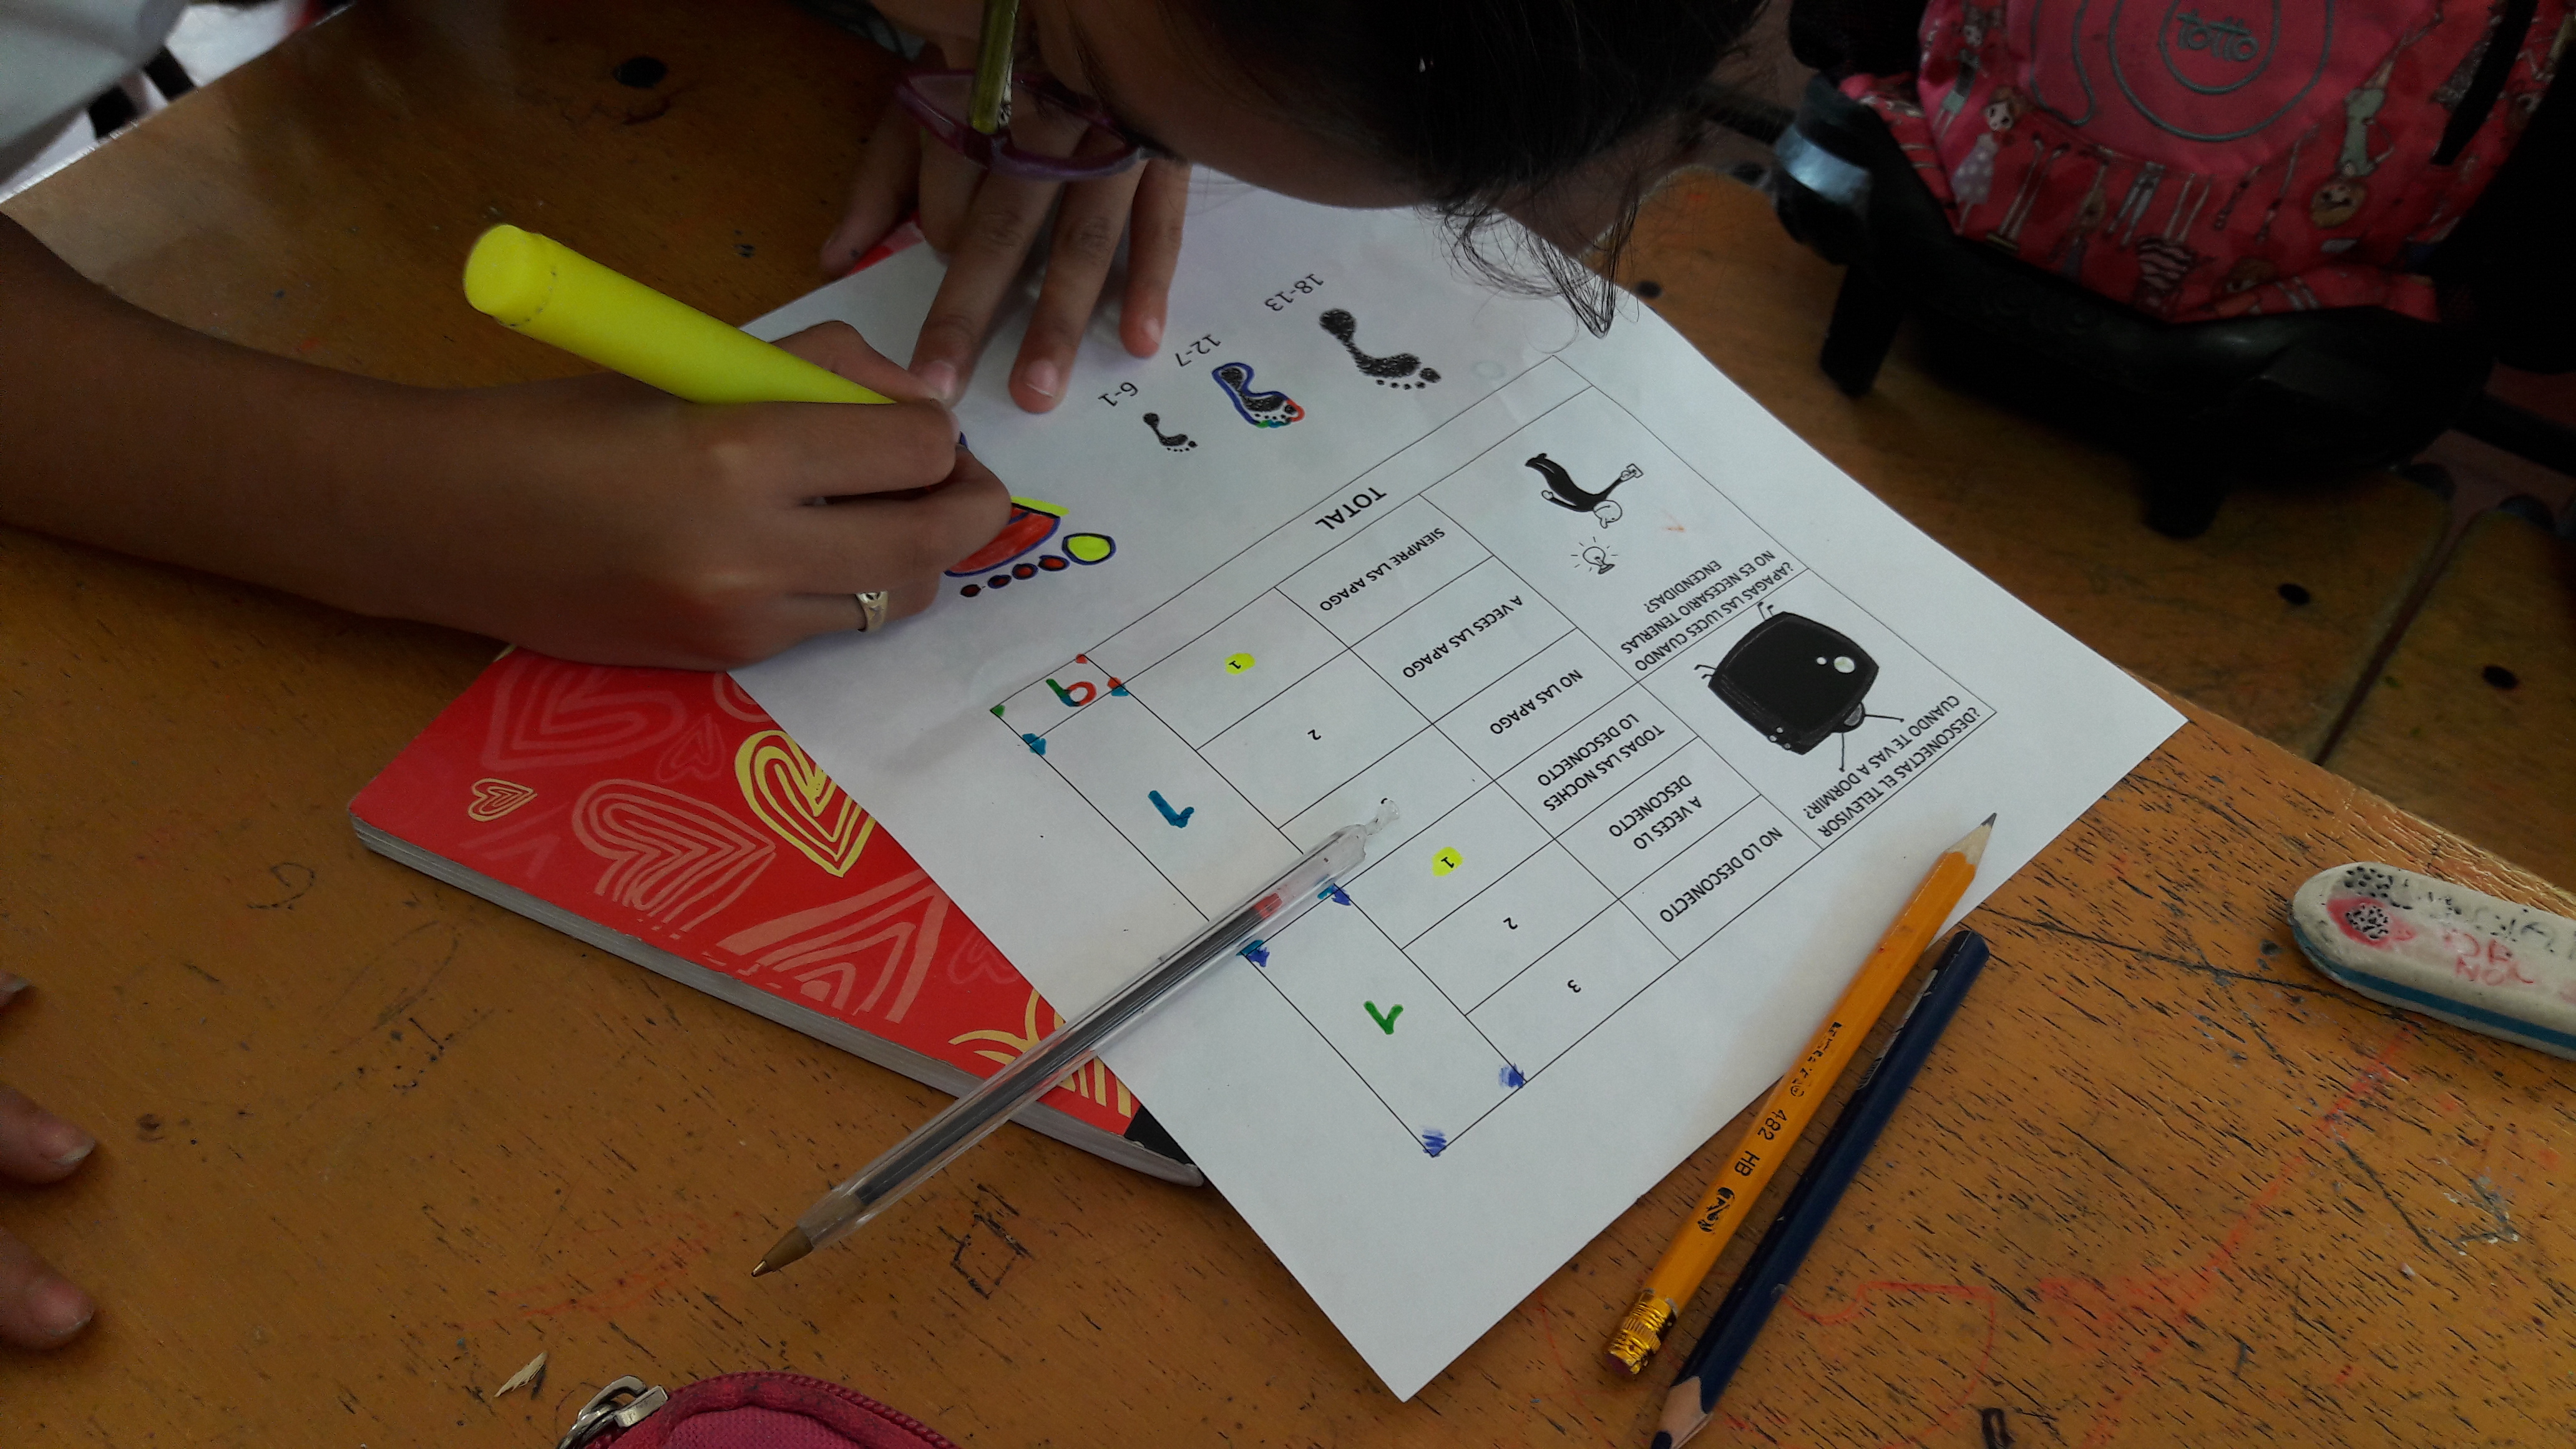 ¿DESCONECTAS EL TELEVISOR
CUANDO TE VAS A DORMIR?
NO LO DESCONECTO
3
A VECES LO
DESCONECTO
2
1
TODAS LAS NOCHES
LO DESCONECTO
1
¿APAGAS LAS LUCES CUANDO
NO ES NECESARIO TENERLAS
ENCENDIDAS?
NO LAS APAGO
A VECES LAS APAGO
2
1
SIEMPRE LAS APAGO
1
TOTAL
18-13
12-7
6-1
totto
482 HB